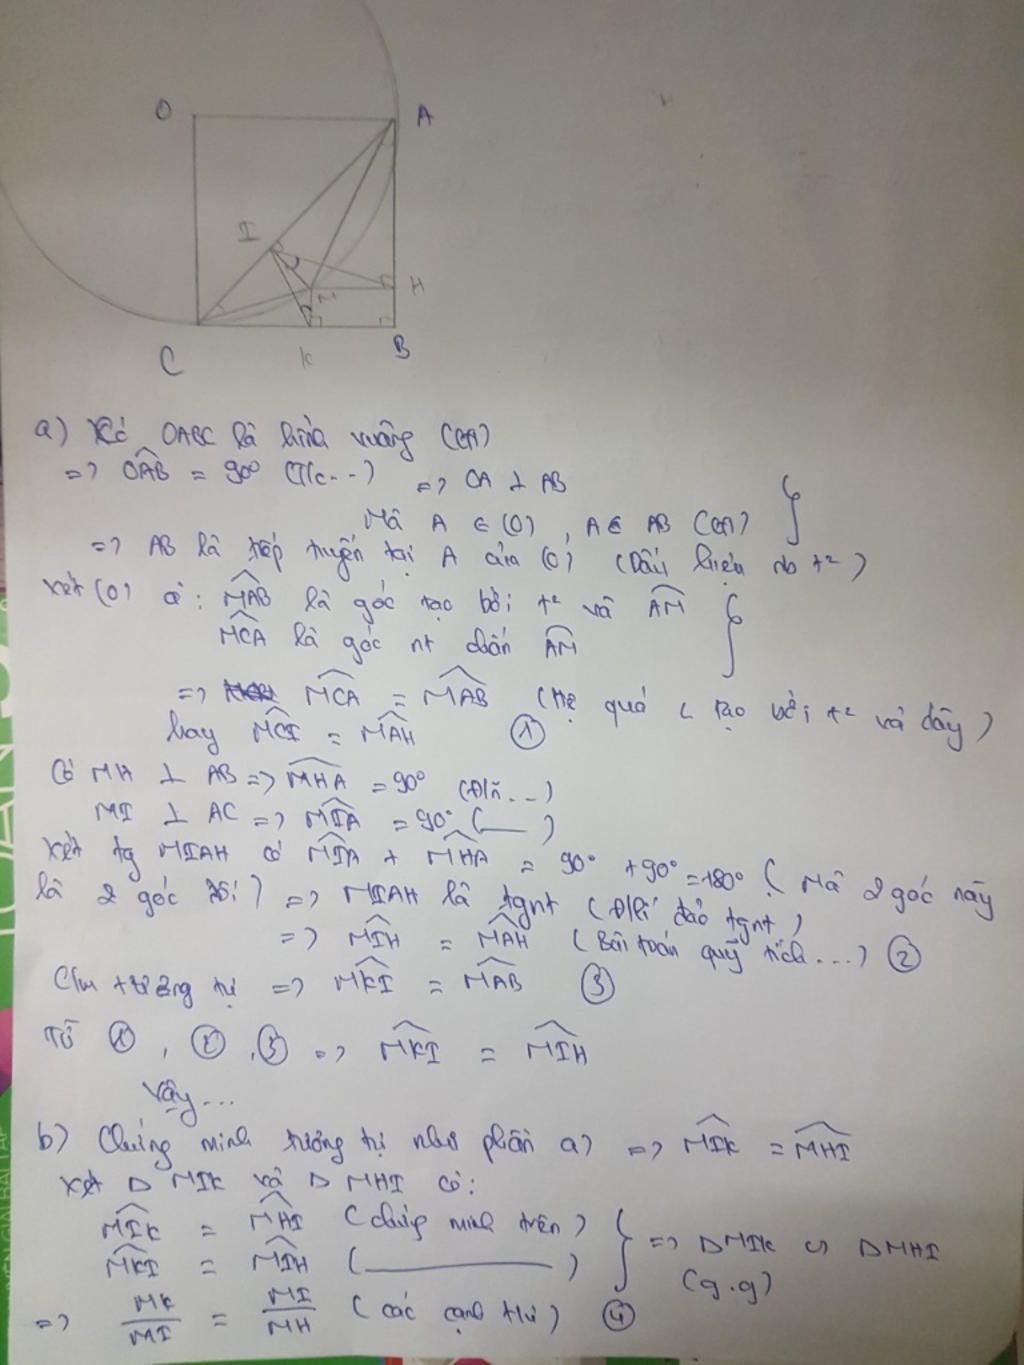 O
A
I
M
H
C
K
B
a) Có OABC là hình vuông (GT)
=> OAB = 90° (T/c...) => OA ⊥ AB
Mà A ∈ (O), A ∈ AB (GT)
=> AB là tiếp tuyến tại A của (O) (Dấu hiệu nb t²)
Xét (O) có: MAB là góc tạo bởi t² và AM
MCA là góc nt chắn AM
=> MCA = MAB (Hệ quả ∠ tạo bởi t² và dây)
hay MCI = MAH ①
Có MH ⊥ AB => MHA = 90° (Đ/n...)
MI ⊥ AC => MIA = 90° (___)
Xét tg MIAH có MIA + MHA = 90° + 90° = 180° (Mà 2 góc này
là 2 góc đối) => MIAH là tgnt (Đ/lí đảo tgnt)
=> MIH = MAH (Bài toán quỹ tích...) ②
Cm tương tự => MKI = MAB ③
Từ ①, ②, ③ => MKI = MIH
Vậy...
b) Chứng minh tương tự như phần a) => MIK = MHI
Xét Δ MIK và Δ MHI có:
MIK = MHI (chứng minh trên)
MKI = MIH (______) => Δ MIK ∽ Δ MHI
(g.g)
=> MK/MI = MI/MH (các cạnh t/ứ) ④